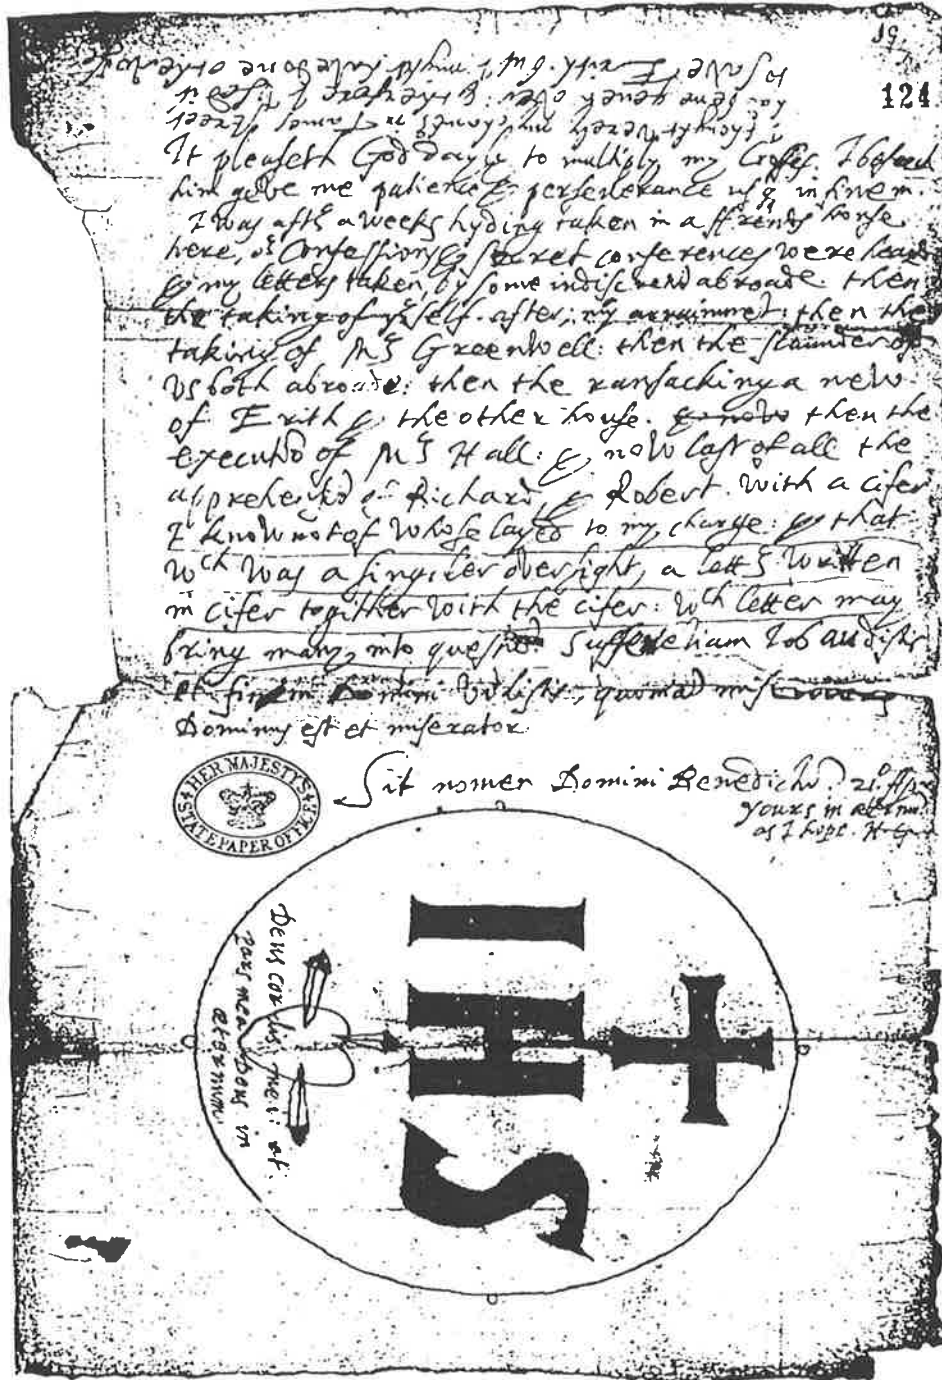 124
It pleaseth God dayly to multiply my Crosses. I beseech
him geve me patience & perseverance usq in finem.
I was after a weeks hyding taken in a ffrends house
here, or Confessions & secret conferences were heard
& my letters taken, by some indiscretio abroade. then
the taking of yr self. after, my arrainmet: then the
taking of Mr Greenwell: then the slaunder of
us both abroade: then the ransacking a new
of Erith & the other house. & now then the
executio of Mr Hall: & now last of all the
apprehensio of Richard & Robert. with a cifer
I know not of whose layed to my charge: & that
wch was a singuler oversight, a lettr written
in cifer togither with the cifer: wch letter may
bring many into questio. Sufferetiam Iob audistis
et finem Domini vidistis, quoniam misericors
Dominus est et miserator.
Sit nomen Domini Benedictu. 21º Apr
yours in aeternu
as I hope. H G
HER MAJESTY'S STATE PAPER OFFICE
IHS
Deus cordis mei: et
pars mea Deus in
aeternum.
to save Erith. but I might have gone otherwise